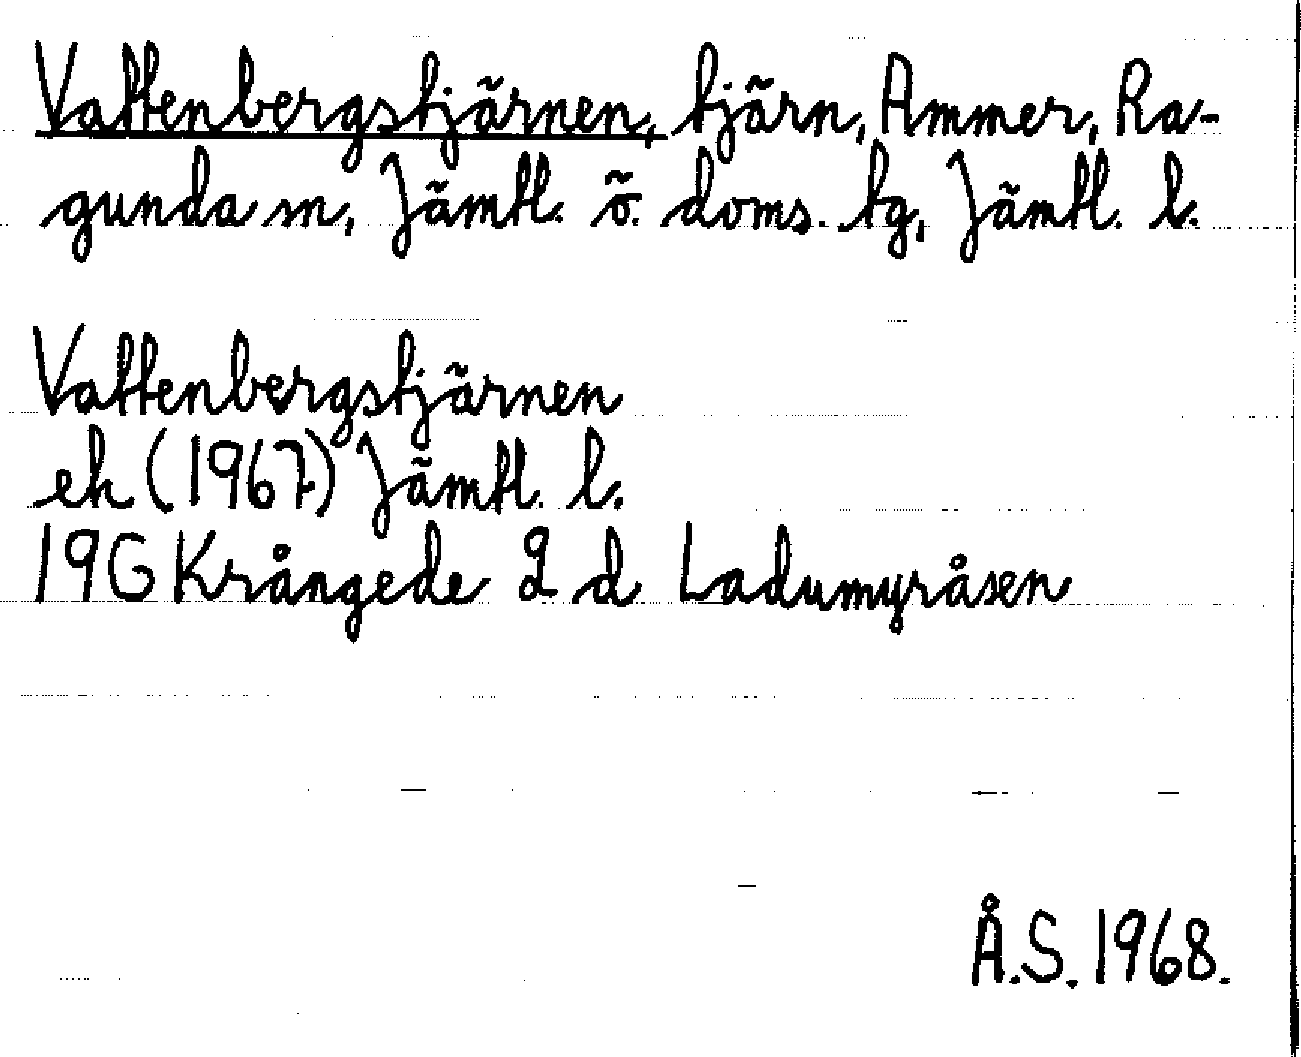 Vattenbergstjärnen, tjärn, Ammer, Ra-
gunda sn, Jämtl. ö. doms. tg, Jämtl. l.
Vattenbergstjärnen
ek (1967) Jämtl. l.
19G Krångede 2 d Ladumyråsen
Å.S. 1968.